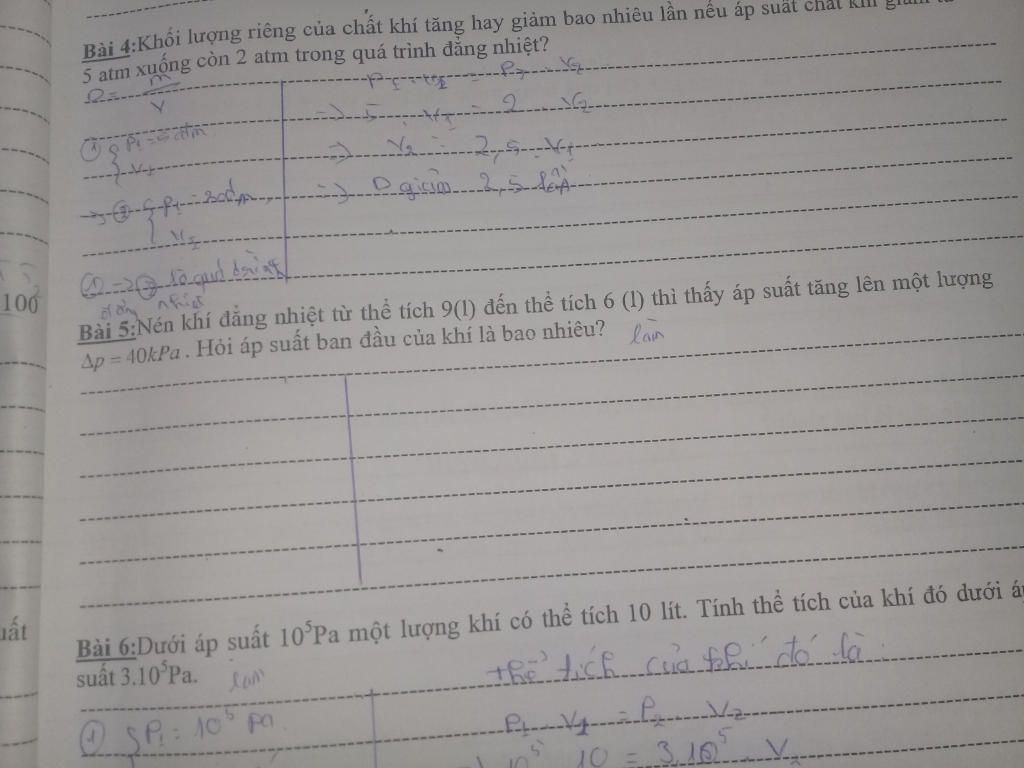 Bài 4:Khối lượng riêng của chất khí tăng hay giảm bao nhiêu lần nếu áp suất chất khí giảm từ
5 atm xuống còn 2 atm trong quá trình đẳng nhiệt?
D = m
V
P1 . V1 = P2 . V2
=> 5 . V1 = 2 . V2
① { P1 = 5 atm
V1
=> V2 = 2,5 . V1
=> D giảm 2,5 lần
-> ②
① -> ② là quá trình
đẳng nhiệt
100
Bài 5:Nén khí đẳng nhiệt từ thể tích 9(l) đến thể tích 6 (l) thì thấy áp suất tăng lên một lượng
Δp = 40kPa . Hỏi áp suất ban đầu của khí là bao nhiêu? làn
uất
Bài 6:Dưới áp suất 10⁵Pa một lượng khí có thể tích 10 lít. Tính thể tích của khí đó dưới áp
suất 3.10⁵Pa. làn
thể tích của khí đó là :
① { P1 = 10⁵ Pa
P1 . V1 = P2 . V2
10⁵ . 10 = 3.10⁵ . V2